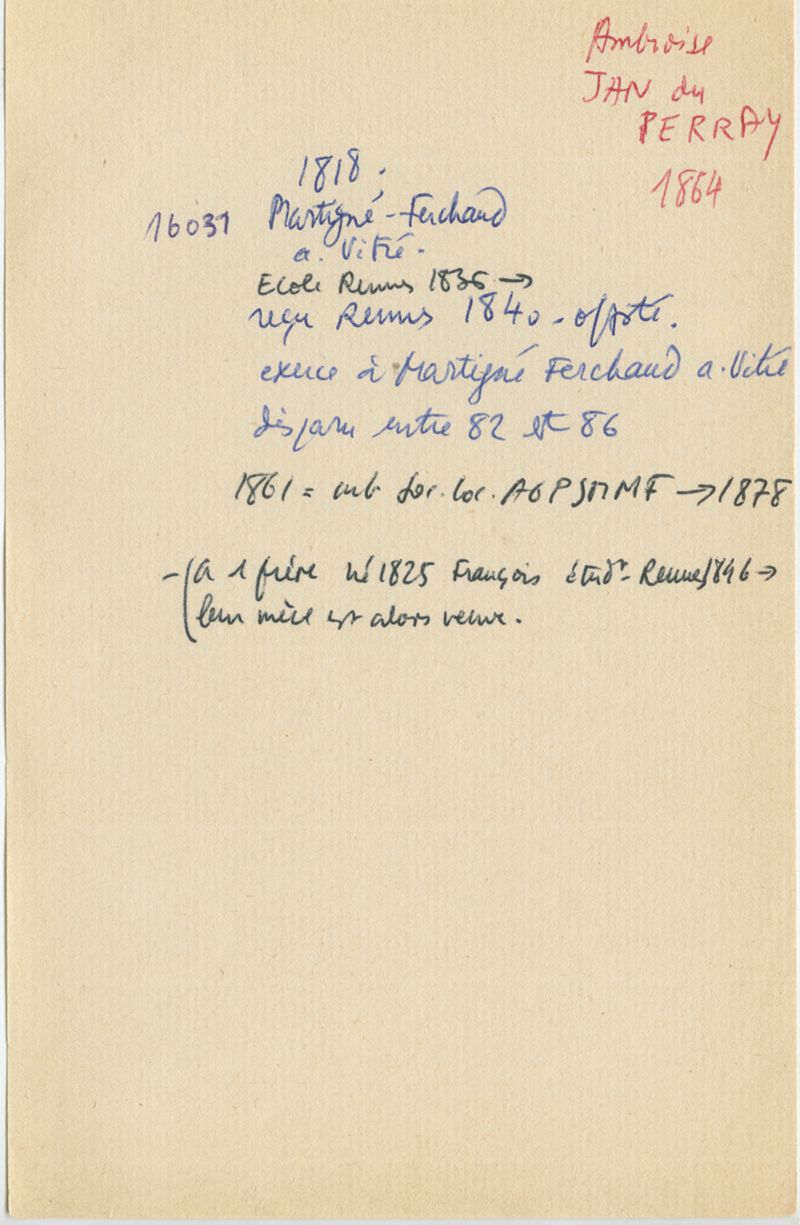 Ambroise
JAN du
PERRAY
1864
1818.
16031 Martigné-Ferchaud
a. Vitré.
Ecole Rennes 1836 →
reçu Rennes 1840 - off sté.
exerce à Martigné Ferchaud a. Vitré
disparu entre 82 et 86
1861 = mb Soc. loc. AGPSMMF → 1878
- (a 1 frère né 1825 François étudt. Rennes 1846 →
leur mère est alors veuve.